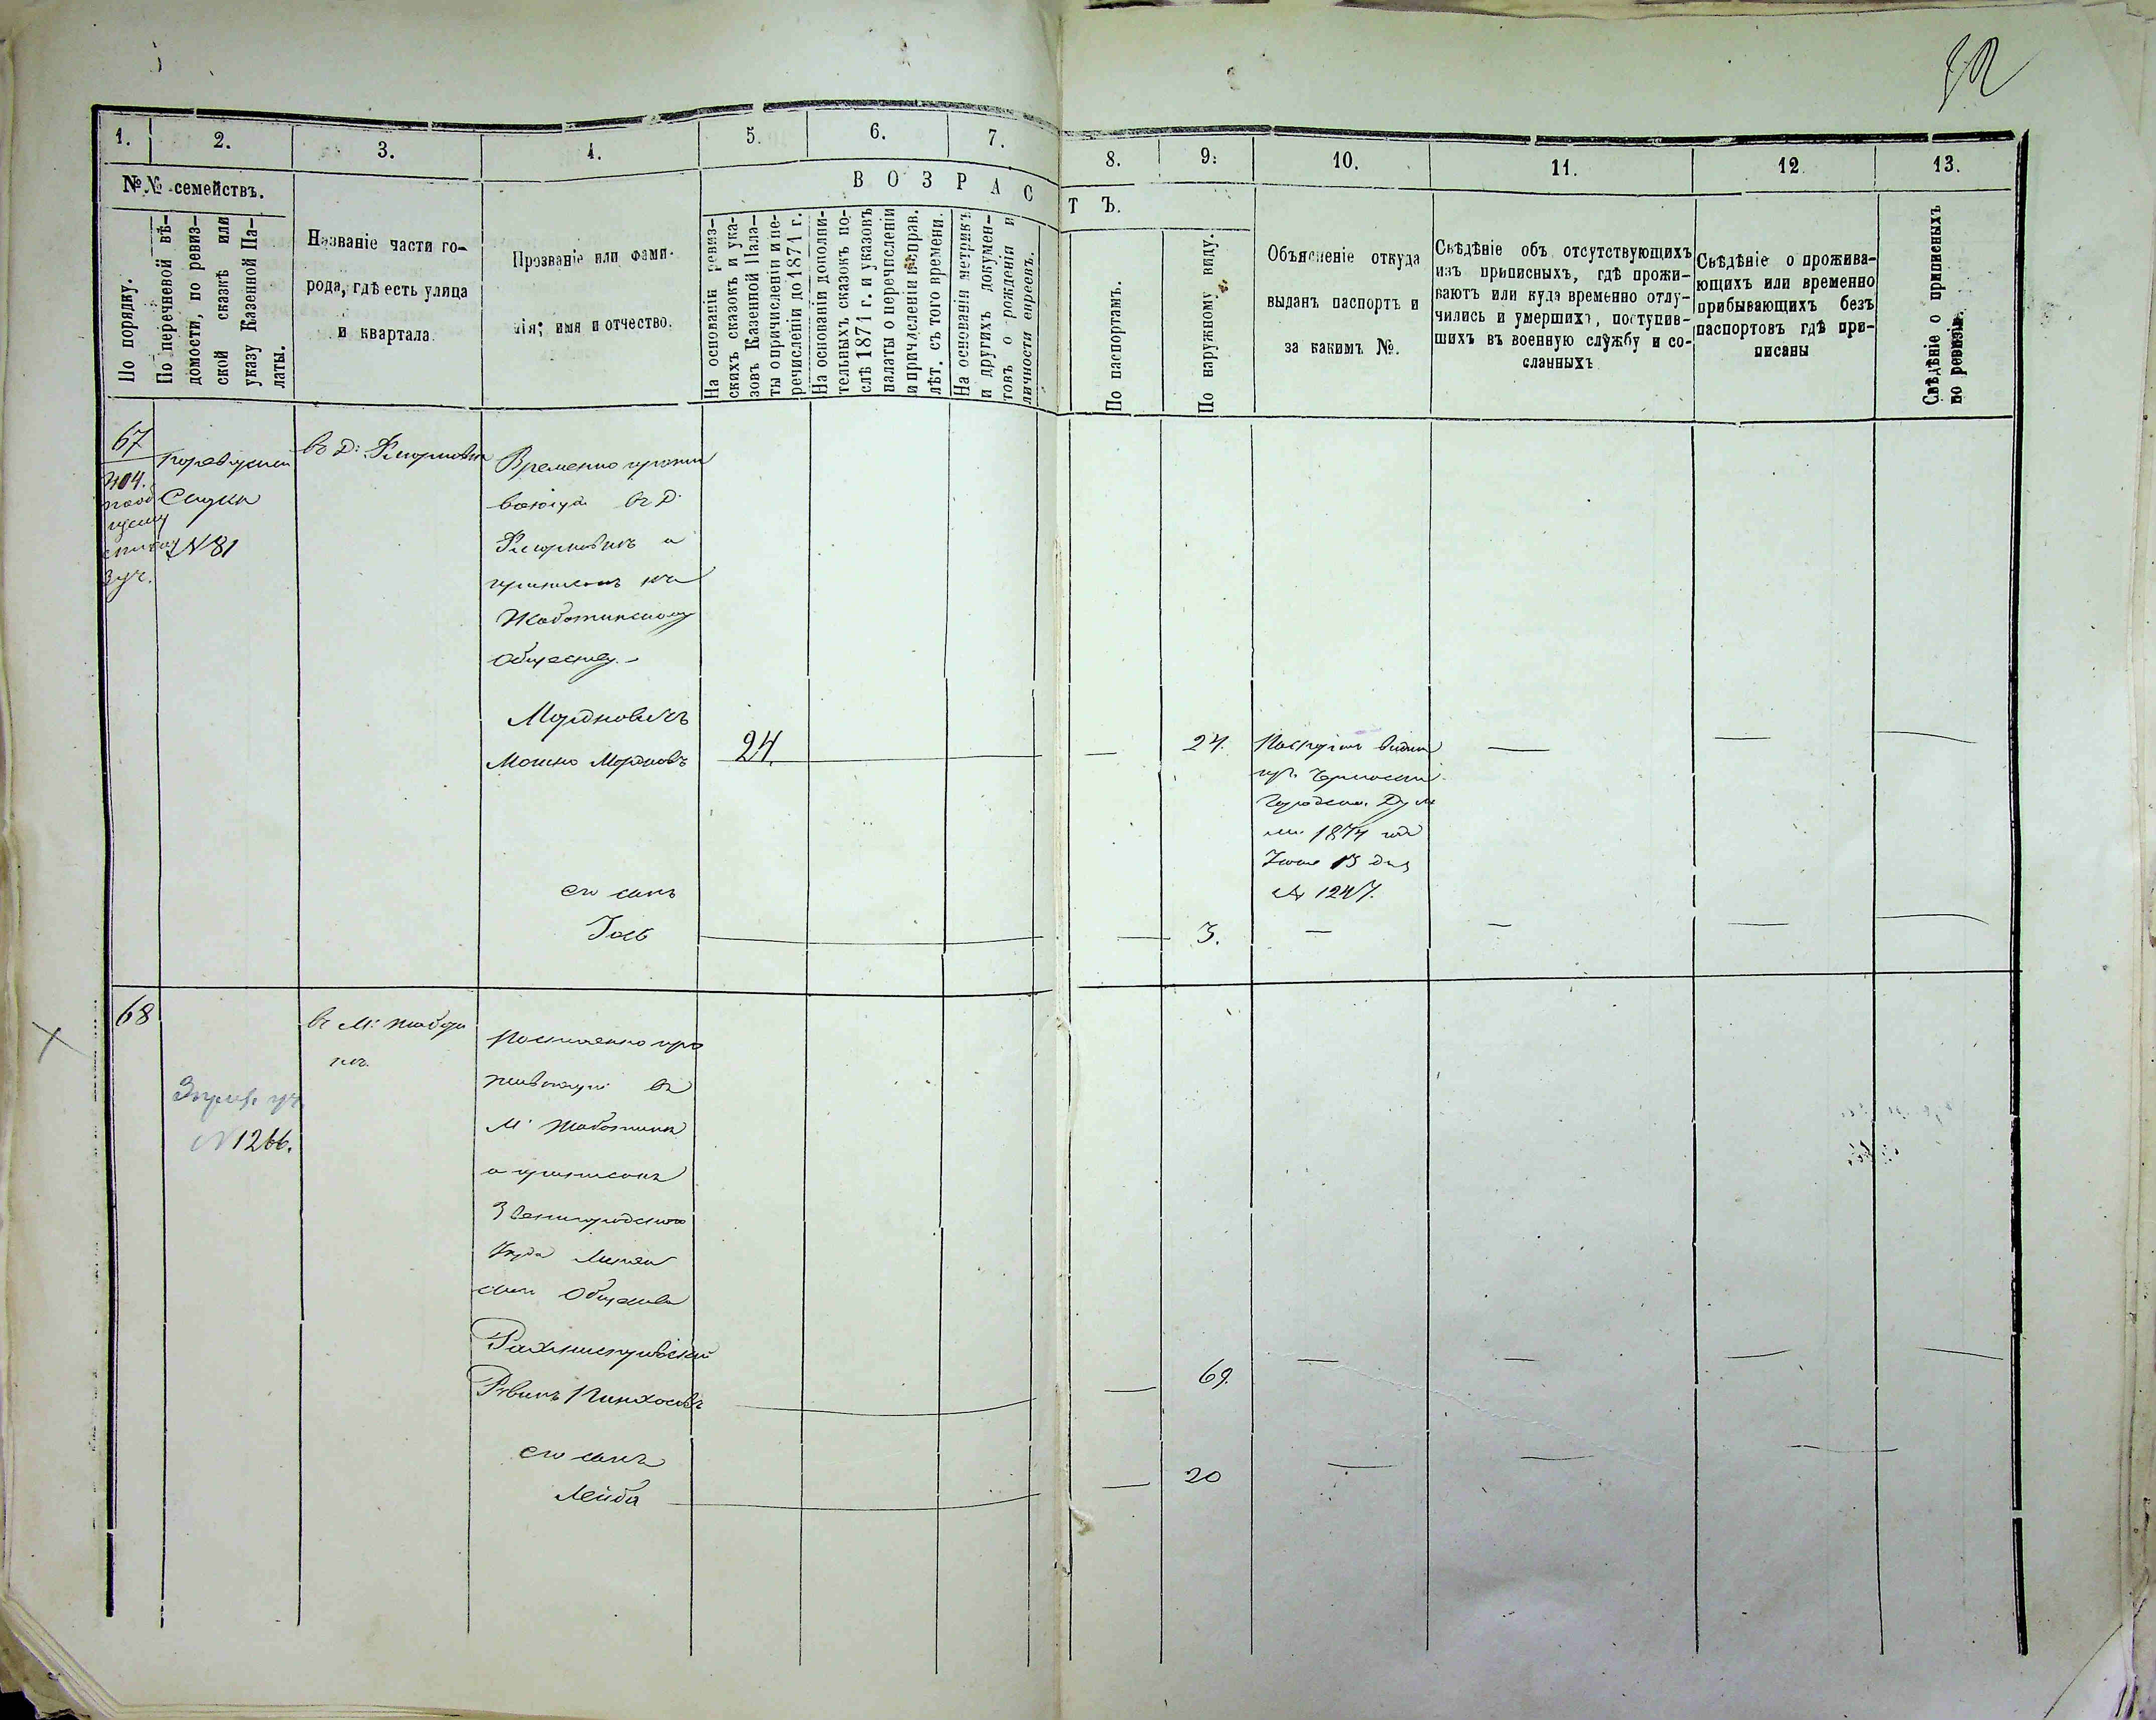 1.
2.
3.
4.
5.
6.
7.
8.
9.
10.
11.
12
13.
№№ семействъ.
По порядку.
По перечневой вѣ-
домости, по ревиз-
ской сказкѣ или
указу Казенной Па-
латы.
Названіе части го-
рода, гдѣ есть улица
и квартала
Прозваніе или фами-
лія; имя и отчество.
ВОЗРАСТЪ.
На основаніи ревиз-
скихъ сказокъ и ука-
зовъ Казенной Пала-
ты о причисленіи и пе-
речисленіи до 1871 г.
На основаніи дополни-
тельныхъ сказокъ по-
слѣ 1871 г. и указовъ
палаты о перечисленіи
и причисленіи и исправ.
лѣт. съ того времени.
На основаніи метрикъ
и другихъ докумен-
товъ о рожденіи и
личности евреевъ.
По паспортамъ.
По наружному виду.
Объясненіе откуда
выданъ паспортъ и
за какимъ №.
Свѣдѣніе объ отсутствующихъ
изъ приписныхъ, гдѣ прожи-
ваютъ или куда временно отлу-
чились и умершихъ, поступив-
шихъ въ военную службу и со-
сланныхъ
Свѣдѣніе о прожива-
ющихъ или временно
прибывающихъ безъ
паспортовъ гдѣ при-
писаны
Свѣдѣніе о приписныхъ
по ревизіи.
67
404.
3 уч.
№ 81
въ Д:
Временно прожи
вающіе въ Д.
а
приписанъ къ
Жаботинскому
Обществу.
Мордковичъ
Мошко Мордковъ
24.
24.
Паспортъ виданъ
Городск. Дум
1874 года
Іюня 13 дня
№ 1247.
его сынъ
Іось
3.
68
№ 1266.
въ М: Жабо
Постоянно про
живающій въ
М. Жаботинѣ
а приписанъ
Звенигородского
Общества
Рахмистривскій
Рувинъ Пинхосовъ
69.
его сынъ
Лейба
20